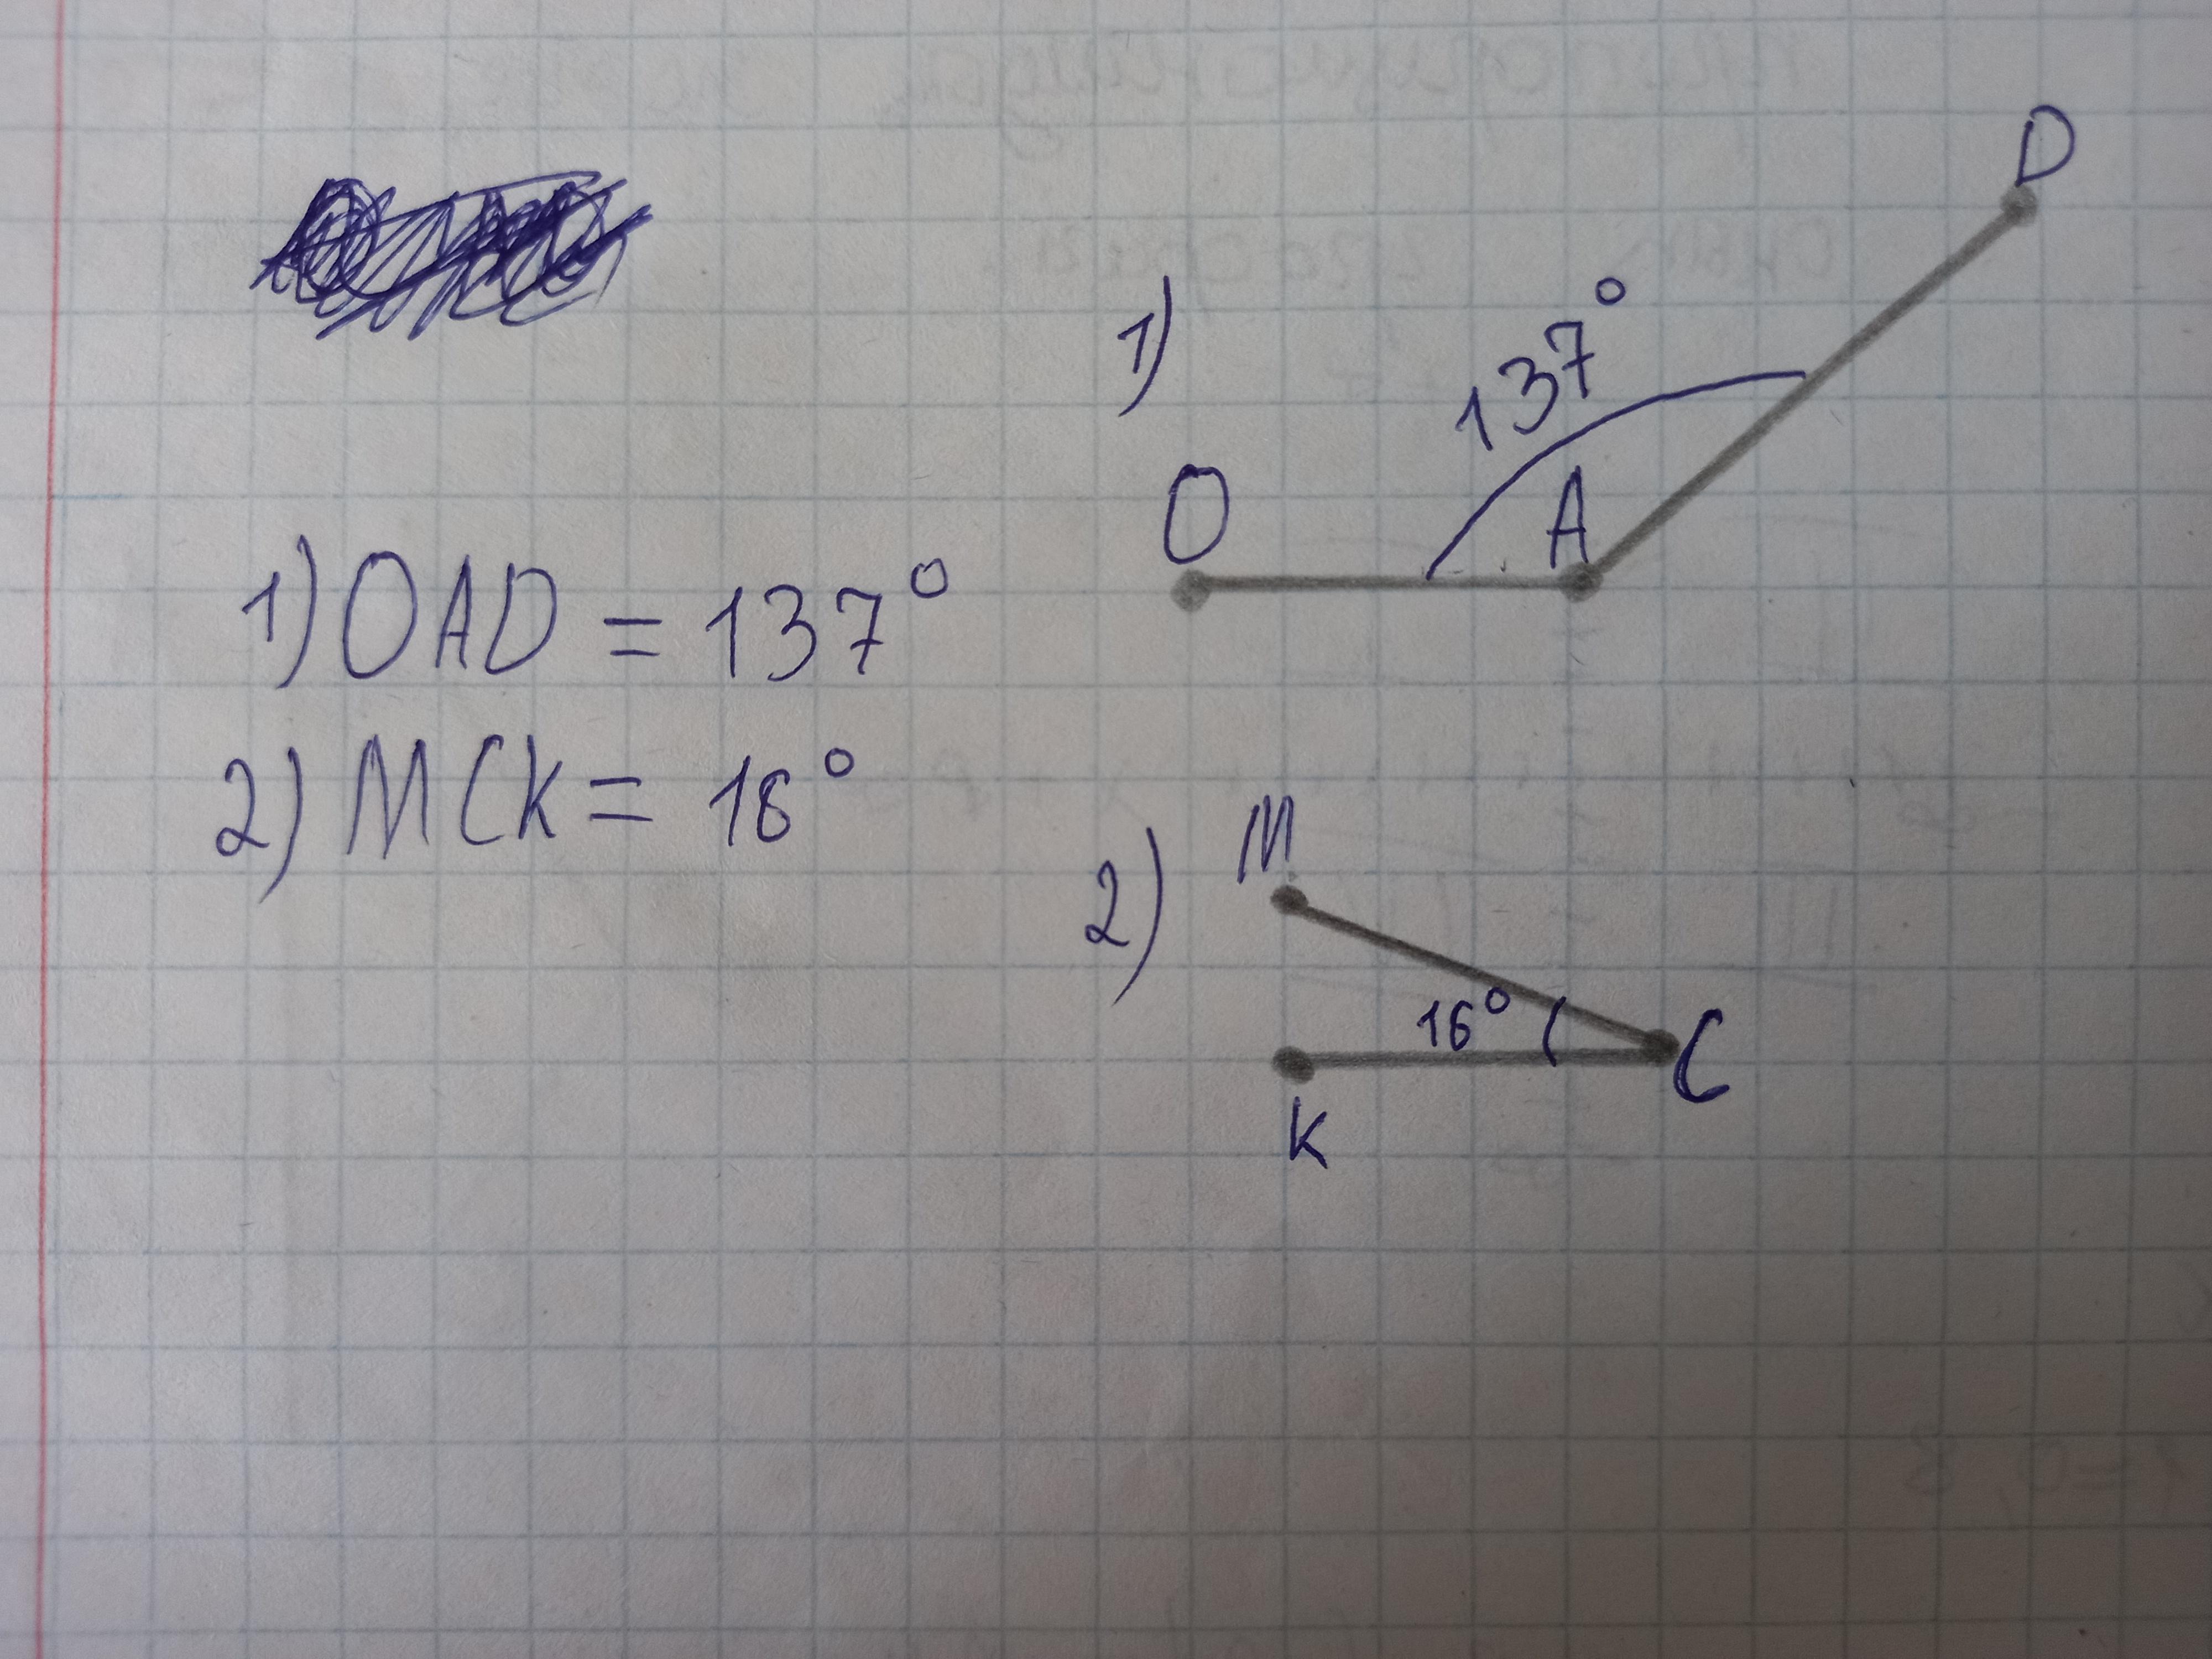 1) OAD = 137°
2) MCK = 16°
1)
137°
O
A
D
2)
M
16°
C
K